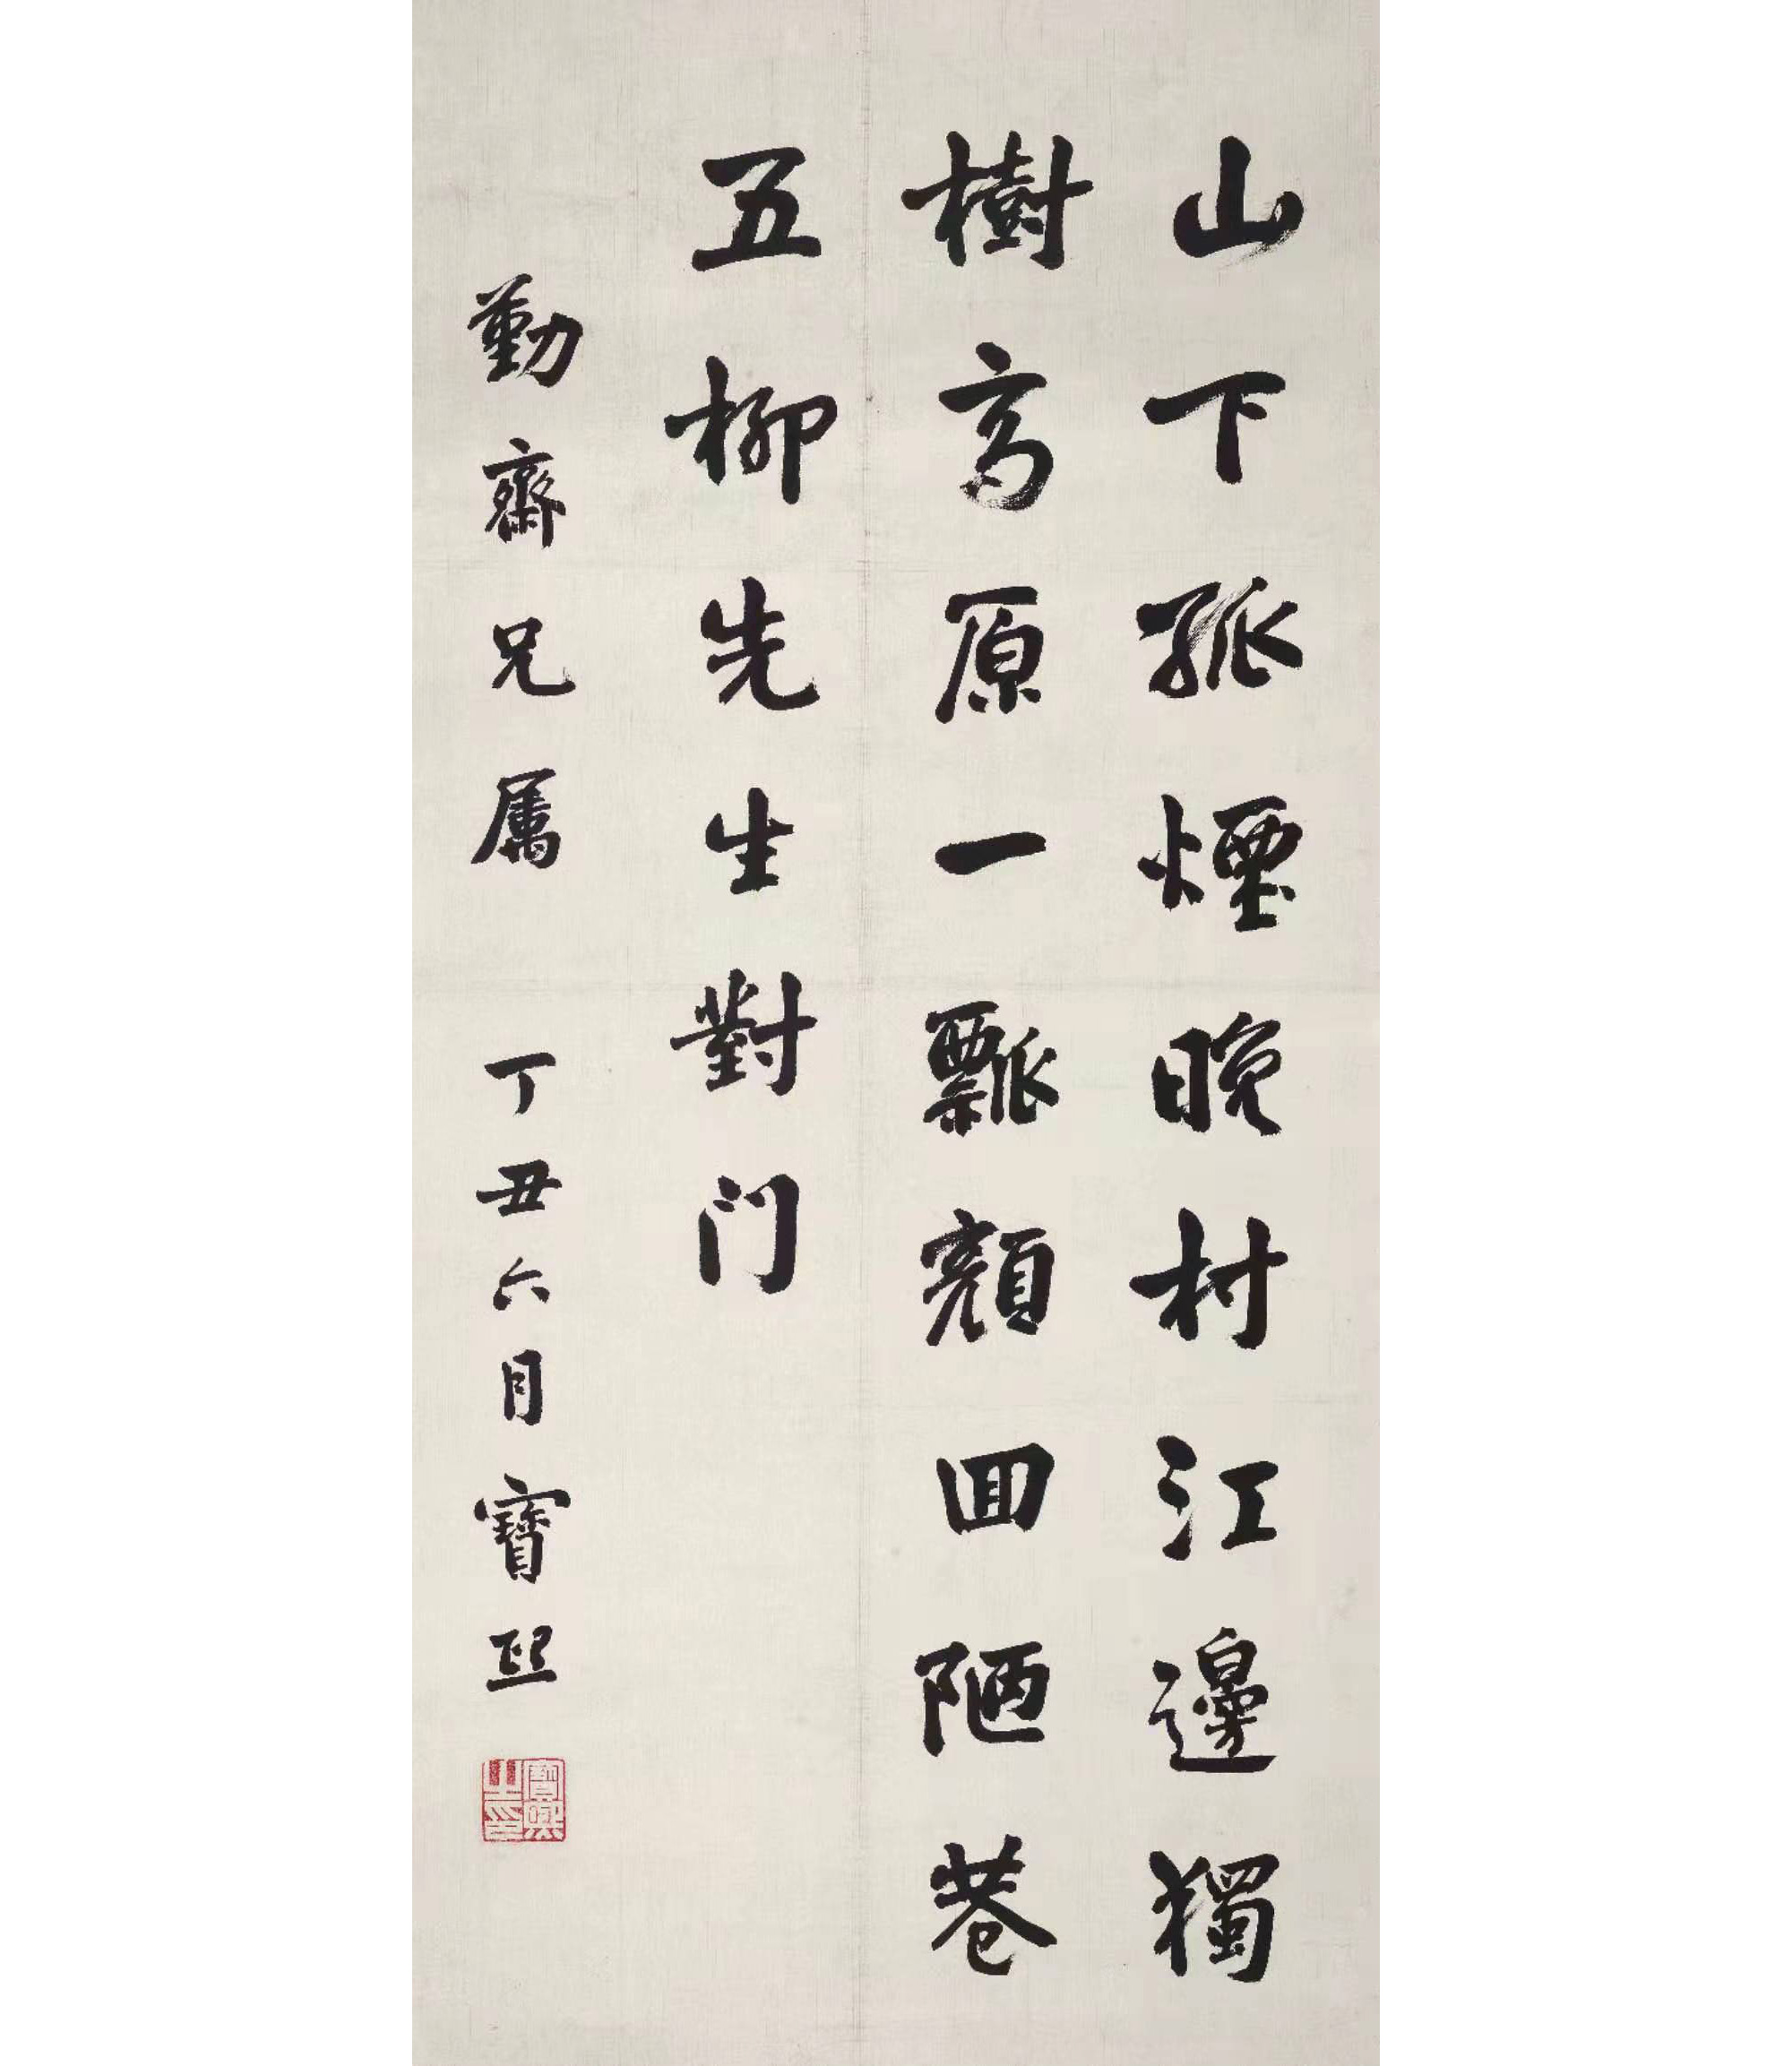 山下孤煙晚村江邊獨
樹高原一瓢顏回陋巷
五柳先生對门
勤齋兄属 丁丑六月寶熙
寶熙之印